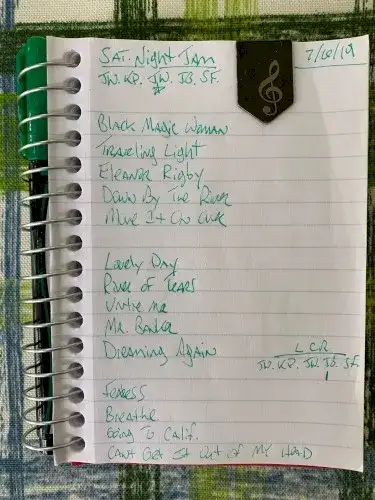 SAT. Night Jam 7/20/19
JW. KP. JW. JB. SF.
Black Magic Woman
Traveling Light
Eleanor Rigby
Down By The River
Move It On Over
Lovely Day
River of Tears
Untie me
Mr. Banker
Dreaming Again
L C R
JW. KP. JW. JB. SF.
Fearless
Breathe
Going To Calif.
Can't Get It Out of My Head